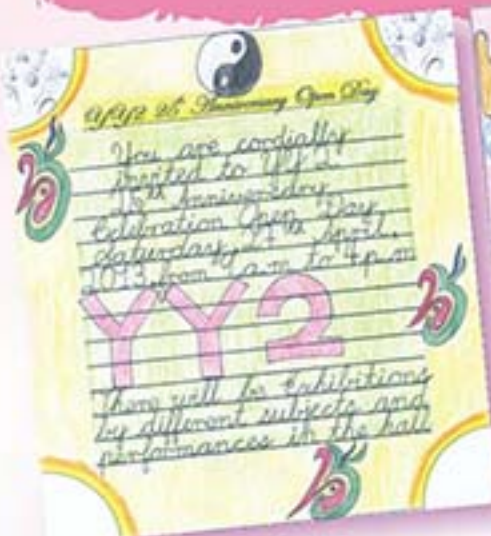 YY2 25th Anniversary Open Day
You are cordially
invited to YY2
25th Anniversary
Celebration Open Day,
Saturday, 27th April,
2013, from a.m. to 4p.m
YY2
There will be Exhibitions
by different subjects and
performances in the hall